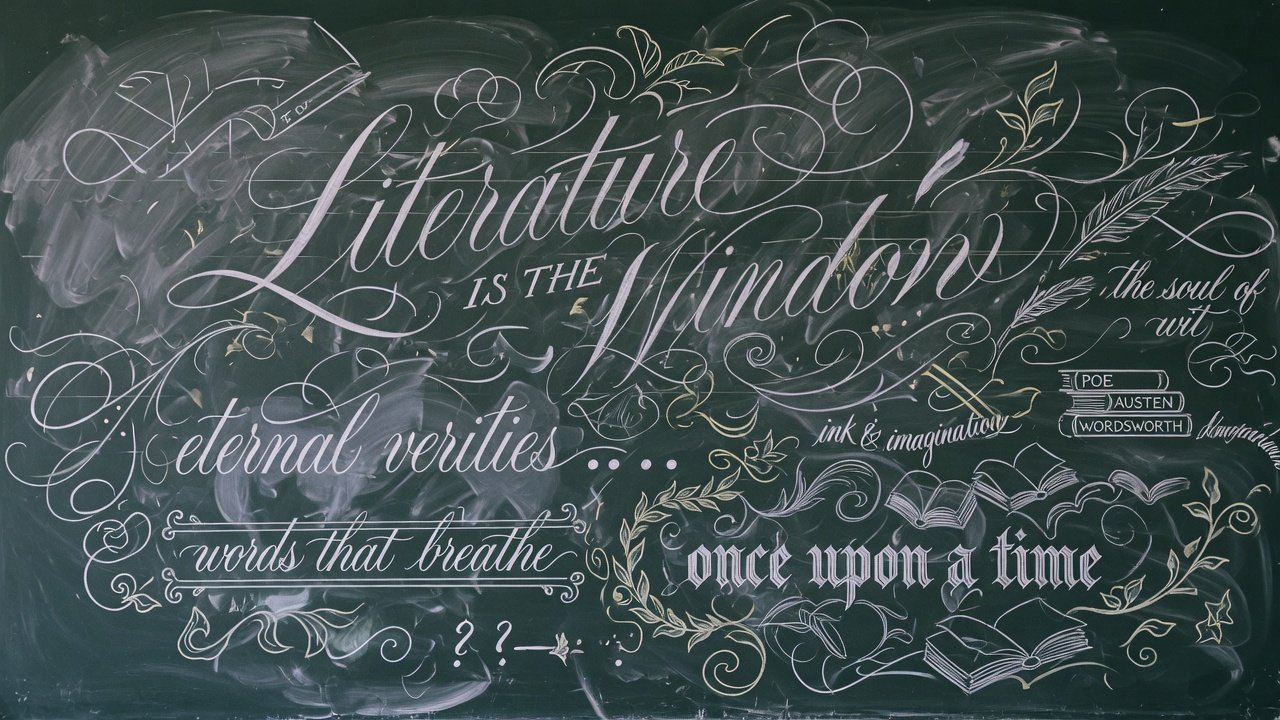 Literature
IS THE
Window
the soul of
wit
POE
AUSTEN
WORDSWORTH
ink & imagination
eternal verities ....
words that breathe
once upon a time
? ?